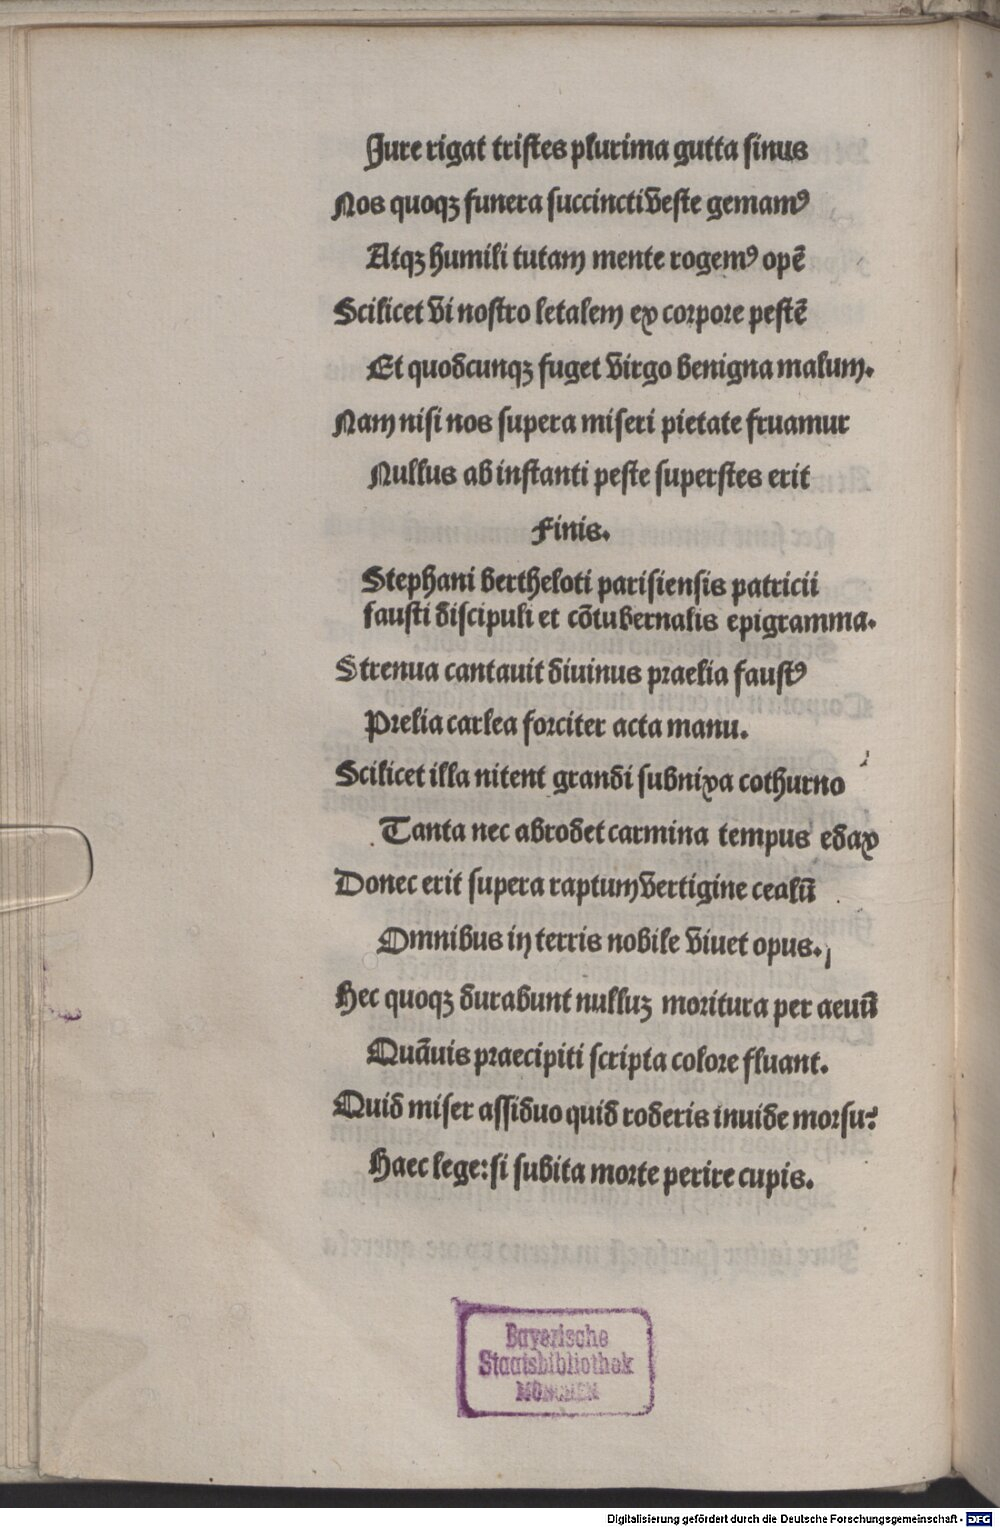 Jure rigat tristes plurima gutta sinus
Nos quoqꝫ funera succincti veste gemamꝰ
Atqꝫ humili tutam mente rogemꝰ opē
Scilicet vi nostro letalem ex corpore pestē
Et quodcunqꝫ fuget virgo benigna malum.
Nam nisi nos supera miseri pietate fruamur
Nullus ab instanti peste superstes erit
Finis.
Stephani bertheloti parisiensis patricii
fausti discipuli et cōtubernalis epigramma.
Strenua cantauit diuinus praelia faustꝰ
Prelia carlea forciter acta manu.
Scilicet illa nitent grandi subnixa cothurno
Tanta nec abrodet carmina tempus edax
Donec erit supera raptum vertigine cealū
Omnibus in terris nobile viuet opus.
Hec quoqꝫ durabunt nulluꝫ moritura per aeuū
Quāuis praecipiti scripta colore fluant.
Quid miser assiduo quid roderis inuide morsu?
Haec lege: si subita morte perire cupis.
Bayerische
Staatsbibliothek
MÜNCHEN
Digitalisierung gefördert durch die Deutsche Forschungsgemeinschaft - DFG